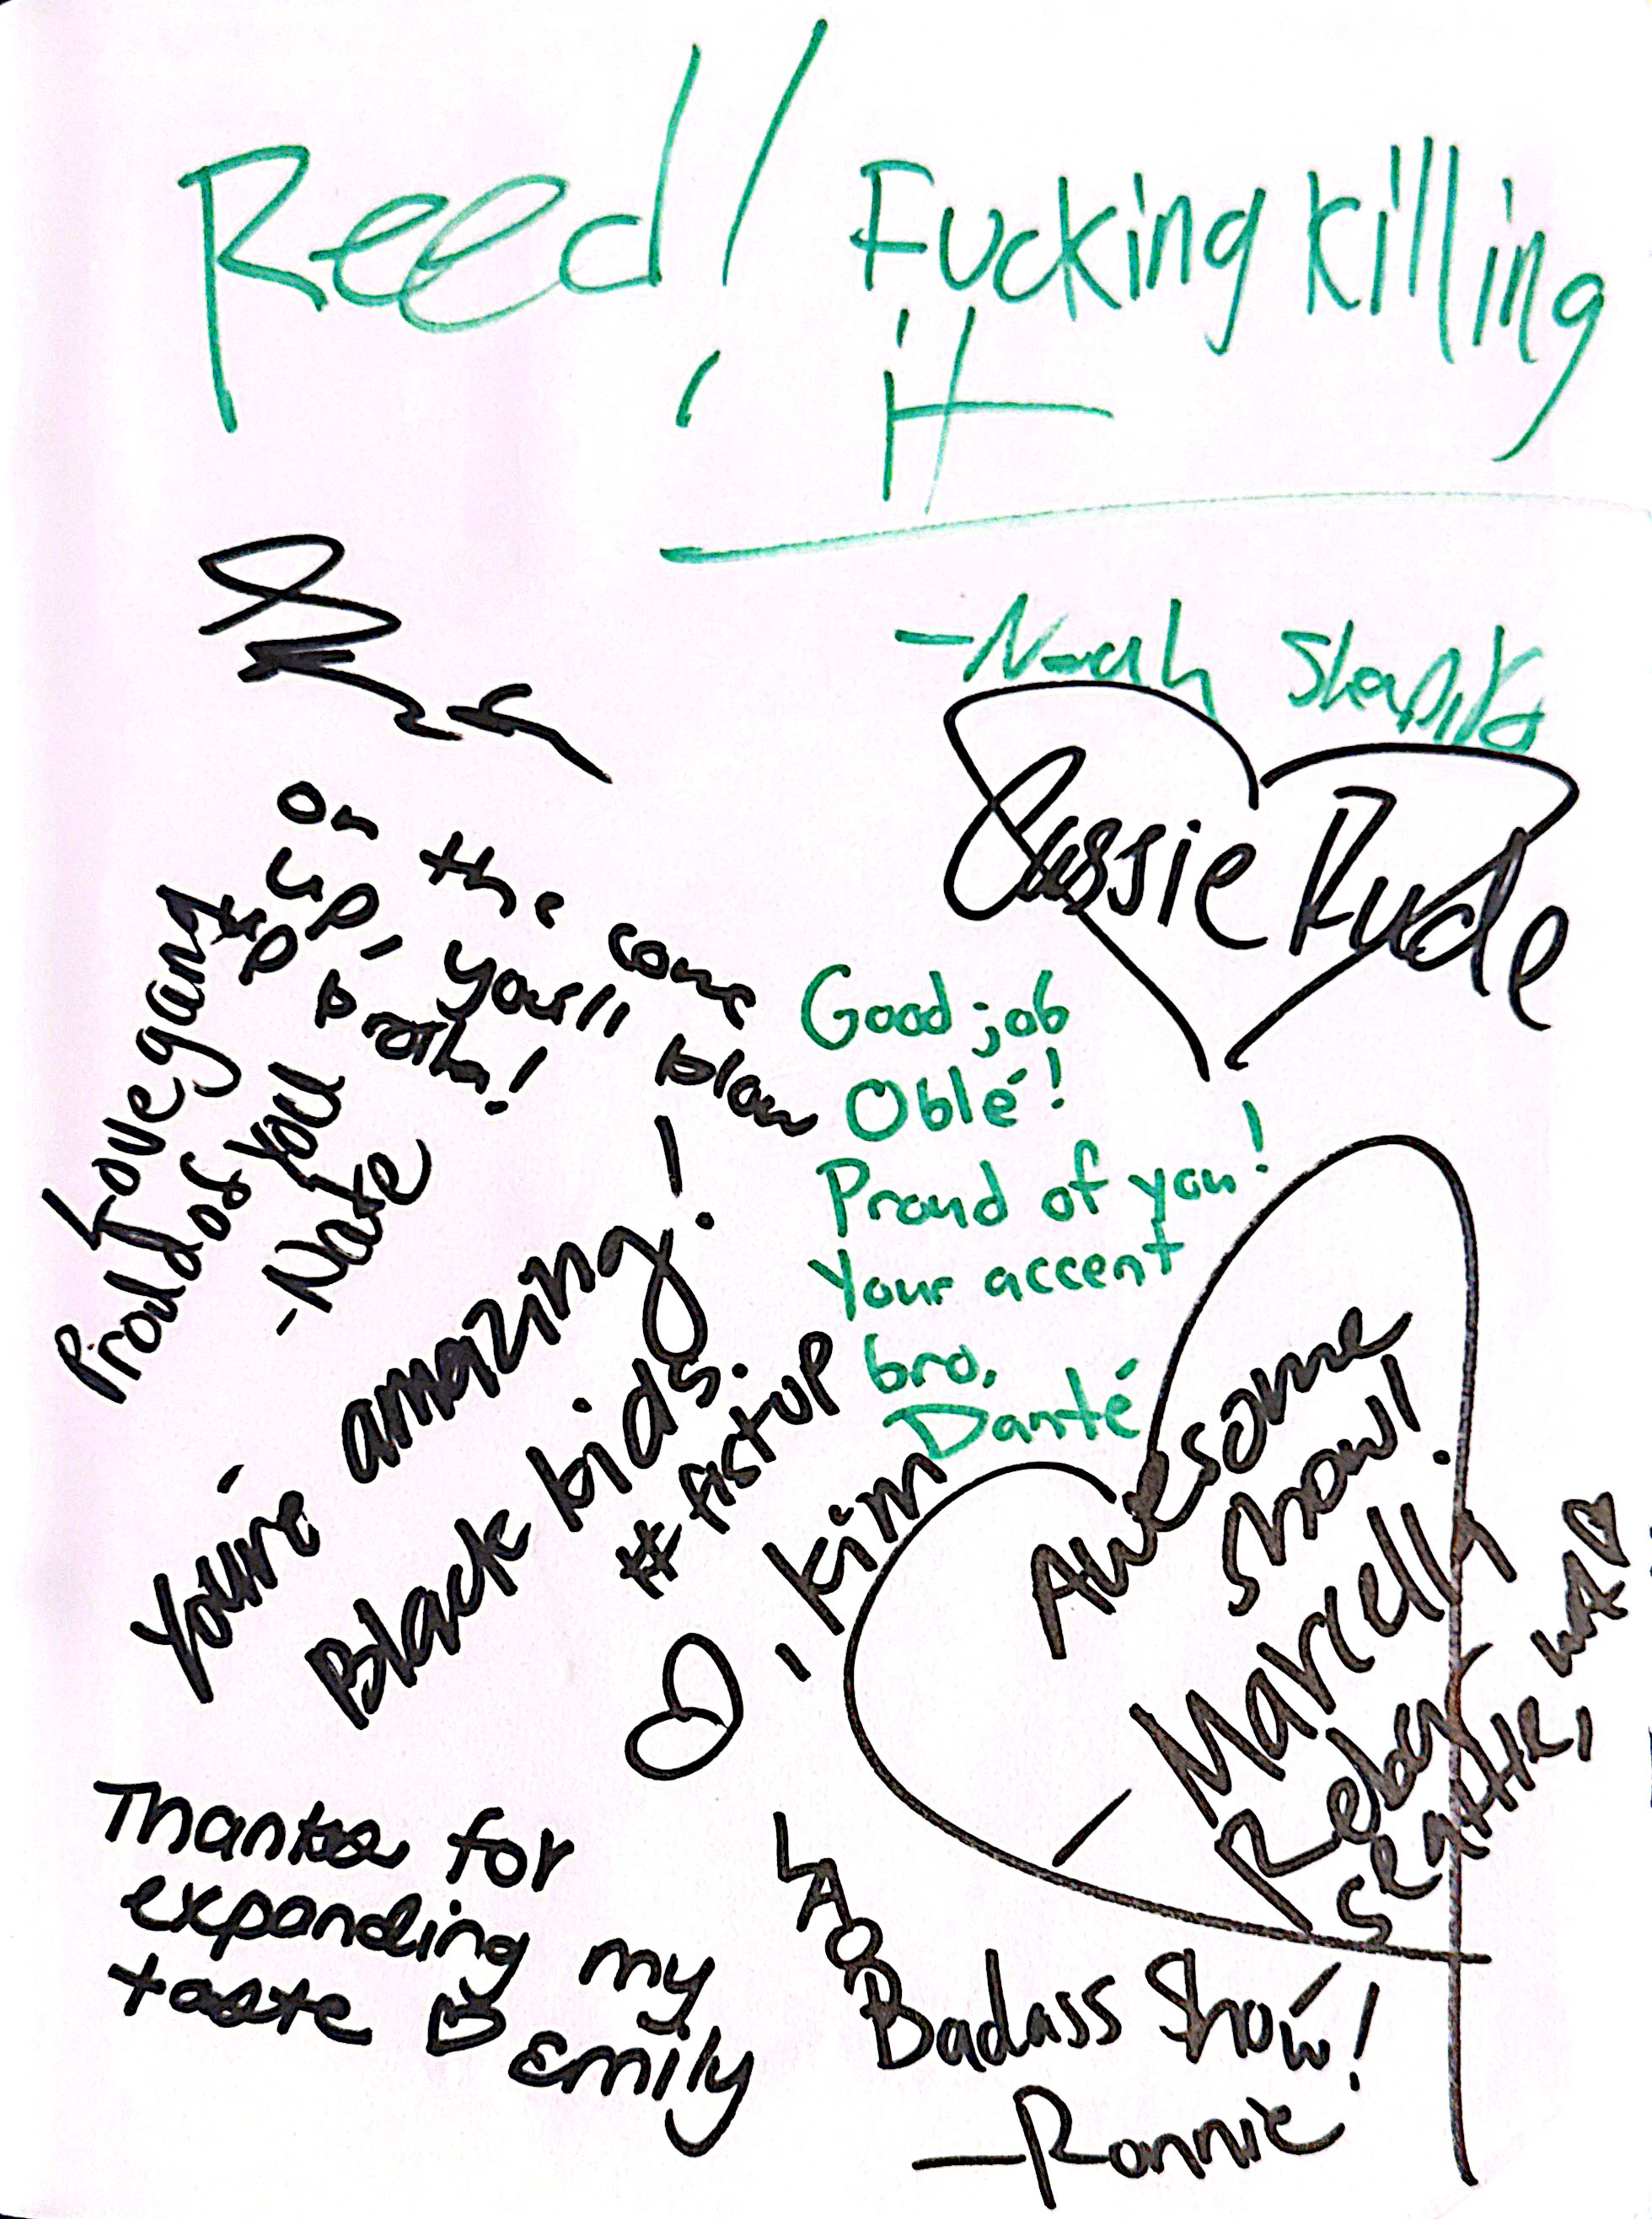 Reed! Fucking killing
it
-Noah
Cassie Rude
on the come
up, you'll blow
up brotha!
Love
Proud of you
-Nate
Good job
Oblé!
Proud of you!
Your accent
bro.
Danté
You're amazing!
Black kids.
#fistup
, Kim
Awesome
show!
- Marcelly
Rebay
Seattle, WA
Thanks for
expanding my
taste
Emily
Badass Show!
-Ronnie